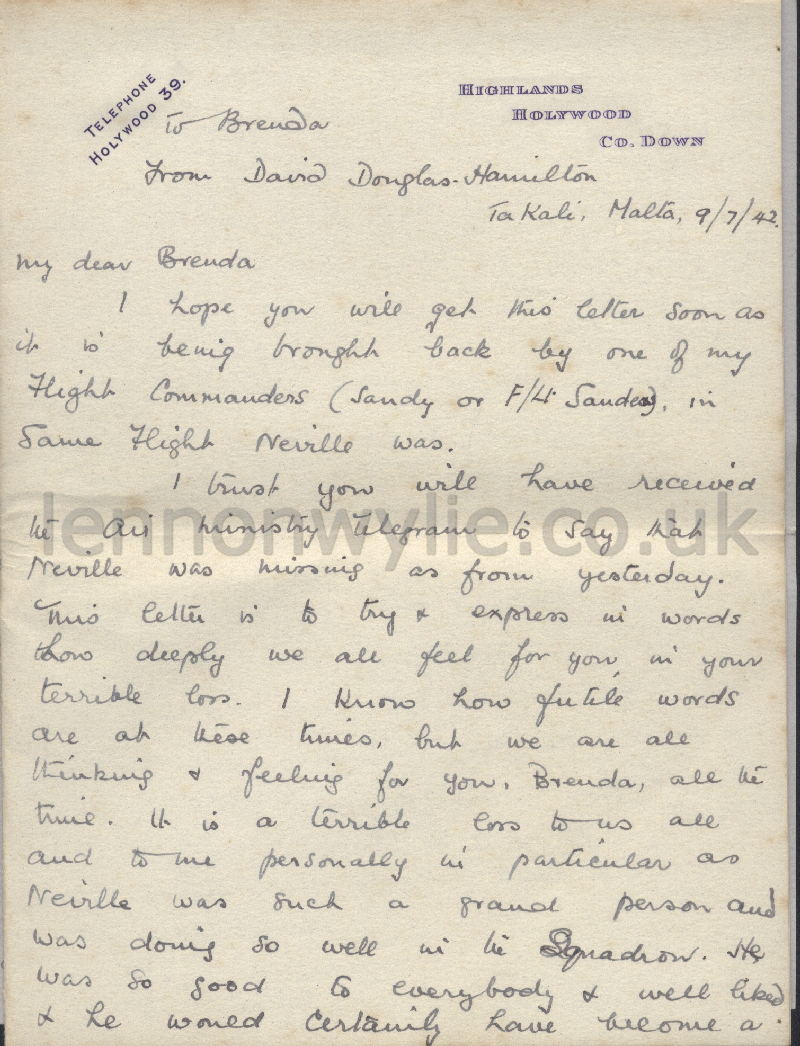 TELEPHONE
HOLYWOOD 39.
HIGHLANDS
HOLYWOOD
CO. DOWN
To Brenda
From David Douglas-Hamilton
Ta Kali, Malta, 9/7/42.
My dear Brenda
I hope you will get this letter soon as
it is being brought back by one of my
Flight Commanders (Sandy or F/Lt Sanders), in
same Flight Neville was.
I trust you will have received
the Air Ministry telegram to say that
lennonwylie.co.uk
Neville was missing as from yesterday.
This letter is to try & express in words
how deeply we all feel for you in your
terrible loss. I know how futile words
are at these times, but we are all
thinking & feeling for you, Brenda, all the
time. It is a terrible loss to us all
and to me personally in particular as
Neville was such a grand person and
was doing so well in the Squadron. He
was so good to everybody & well liked
& he would certainly have become a